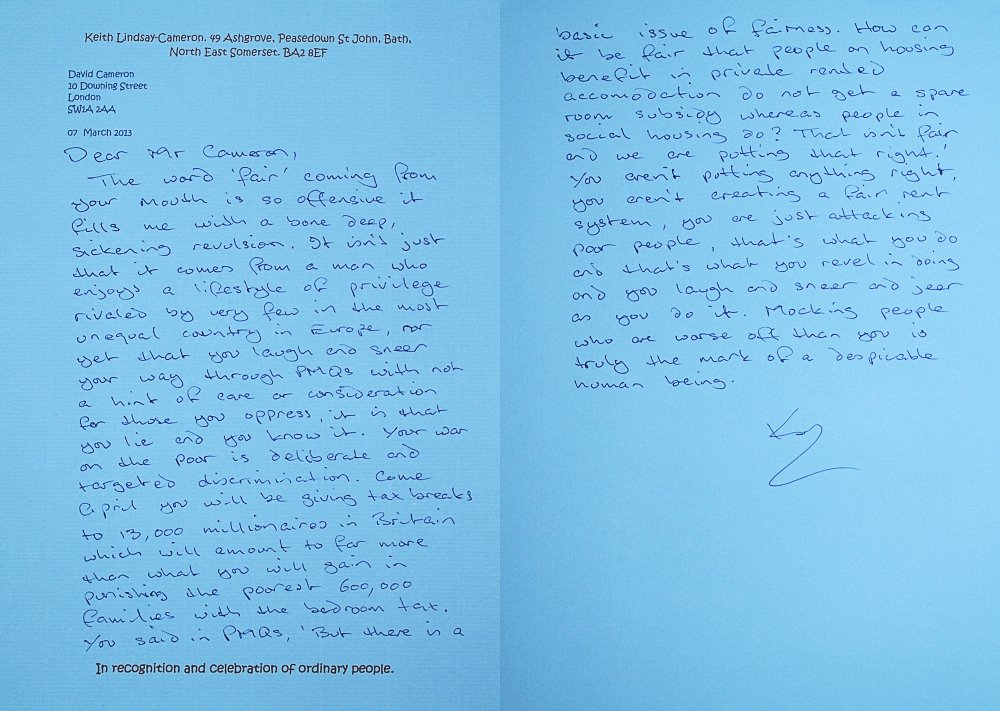 Keith Lindsay-Cameron. 49 Ashgrove, Peasedown St John, Bath,
North East Somerset. BA2 8EF
David Cameron
10 Downing Street
London
SW1A 2AA
07 March 2013
Dear Mr Cameron,
The word 'fair' coming from
your mouth is so offensive it
fills me with a bone deep,
sickening revulsion. It isn't just
that it comes from a man who
enjoys a lifestyle of privilege
rivaled by very few in the most
unequal country in Europe, nor
yet that you laugh and sneer
your way through PMQs with not
a hint of care or consideration
for those you oppress, it is that
you lie and you know it. Your war
on the poor is deliberate and
targeted discrimination. Come
April you will be giving tax breaks
to 13,000 millionaires in Britain
which will amount to far more
than what you will gain in
punishing the poorest 600,000
families with the bedroom tax.
You said in PMQs, 'But there is a
In recognition and celebration of ordinary people.
basic issue of fairness. How can
it be fair that people on housing
benefit in private rented
accomodation do not get a spare
room subsidy whereas people in
social housing do? That isn't fair
and we are putting that right.'
You aren't putting anything right,
you aren't creating a fair rent
system, you are just attacking
poor people, that's what you do
and that's what you revel in doing
and you laugh and sneer and jeer
as you do it. Mocking people
who are worse off than you is
truly the mark of a despicable
human being.